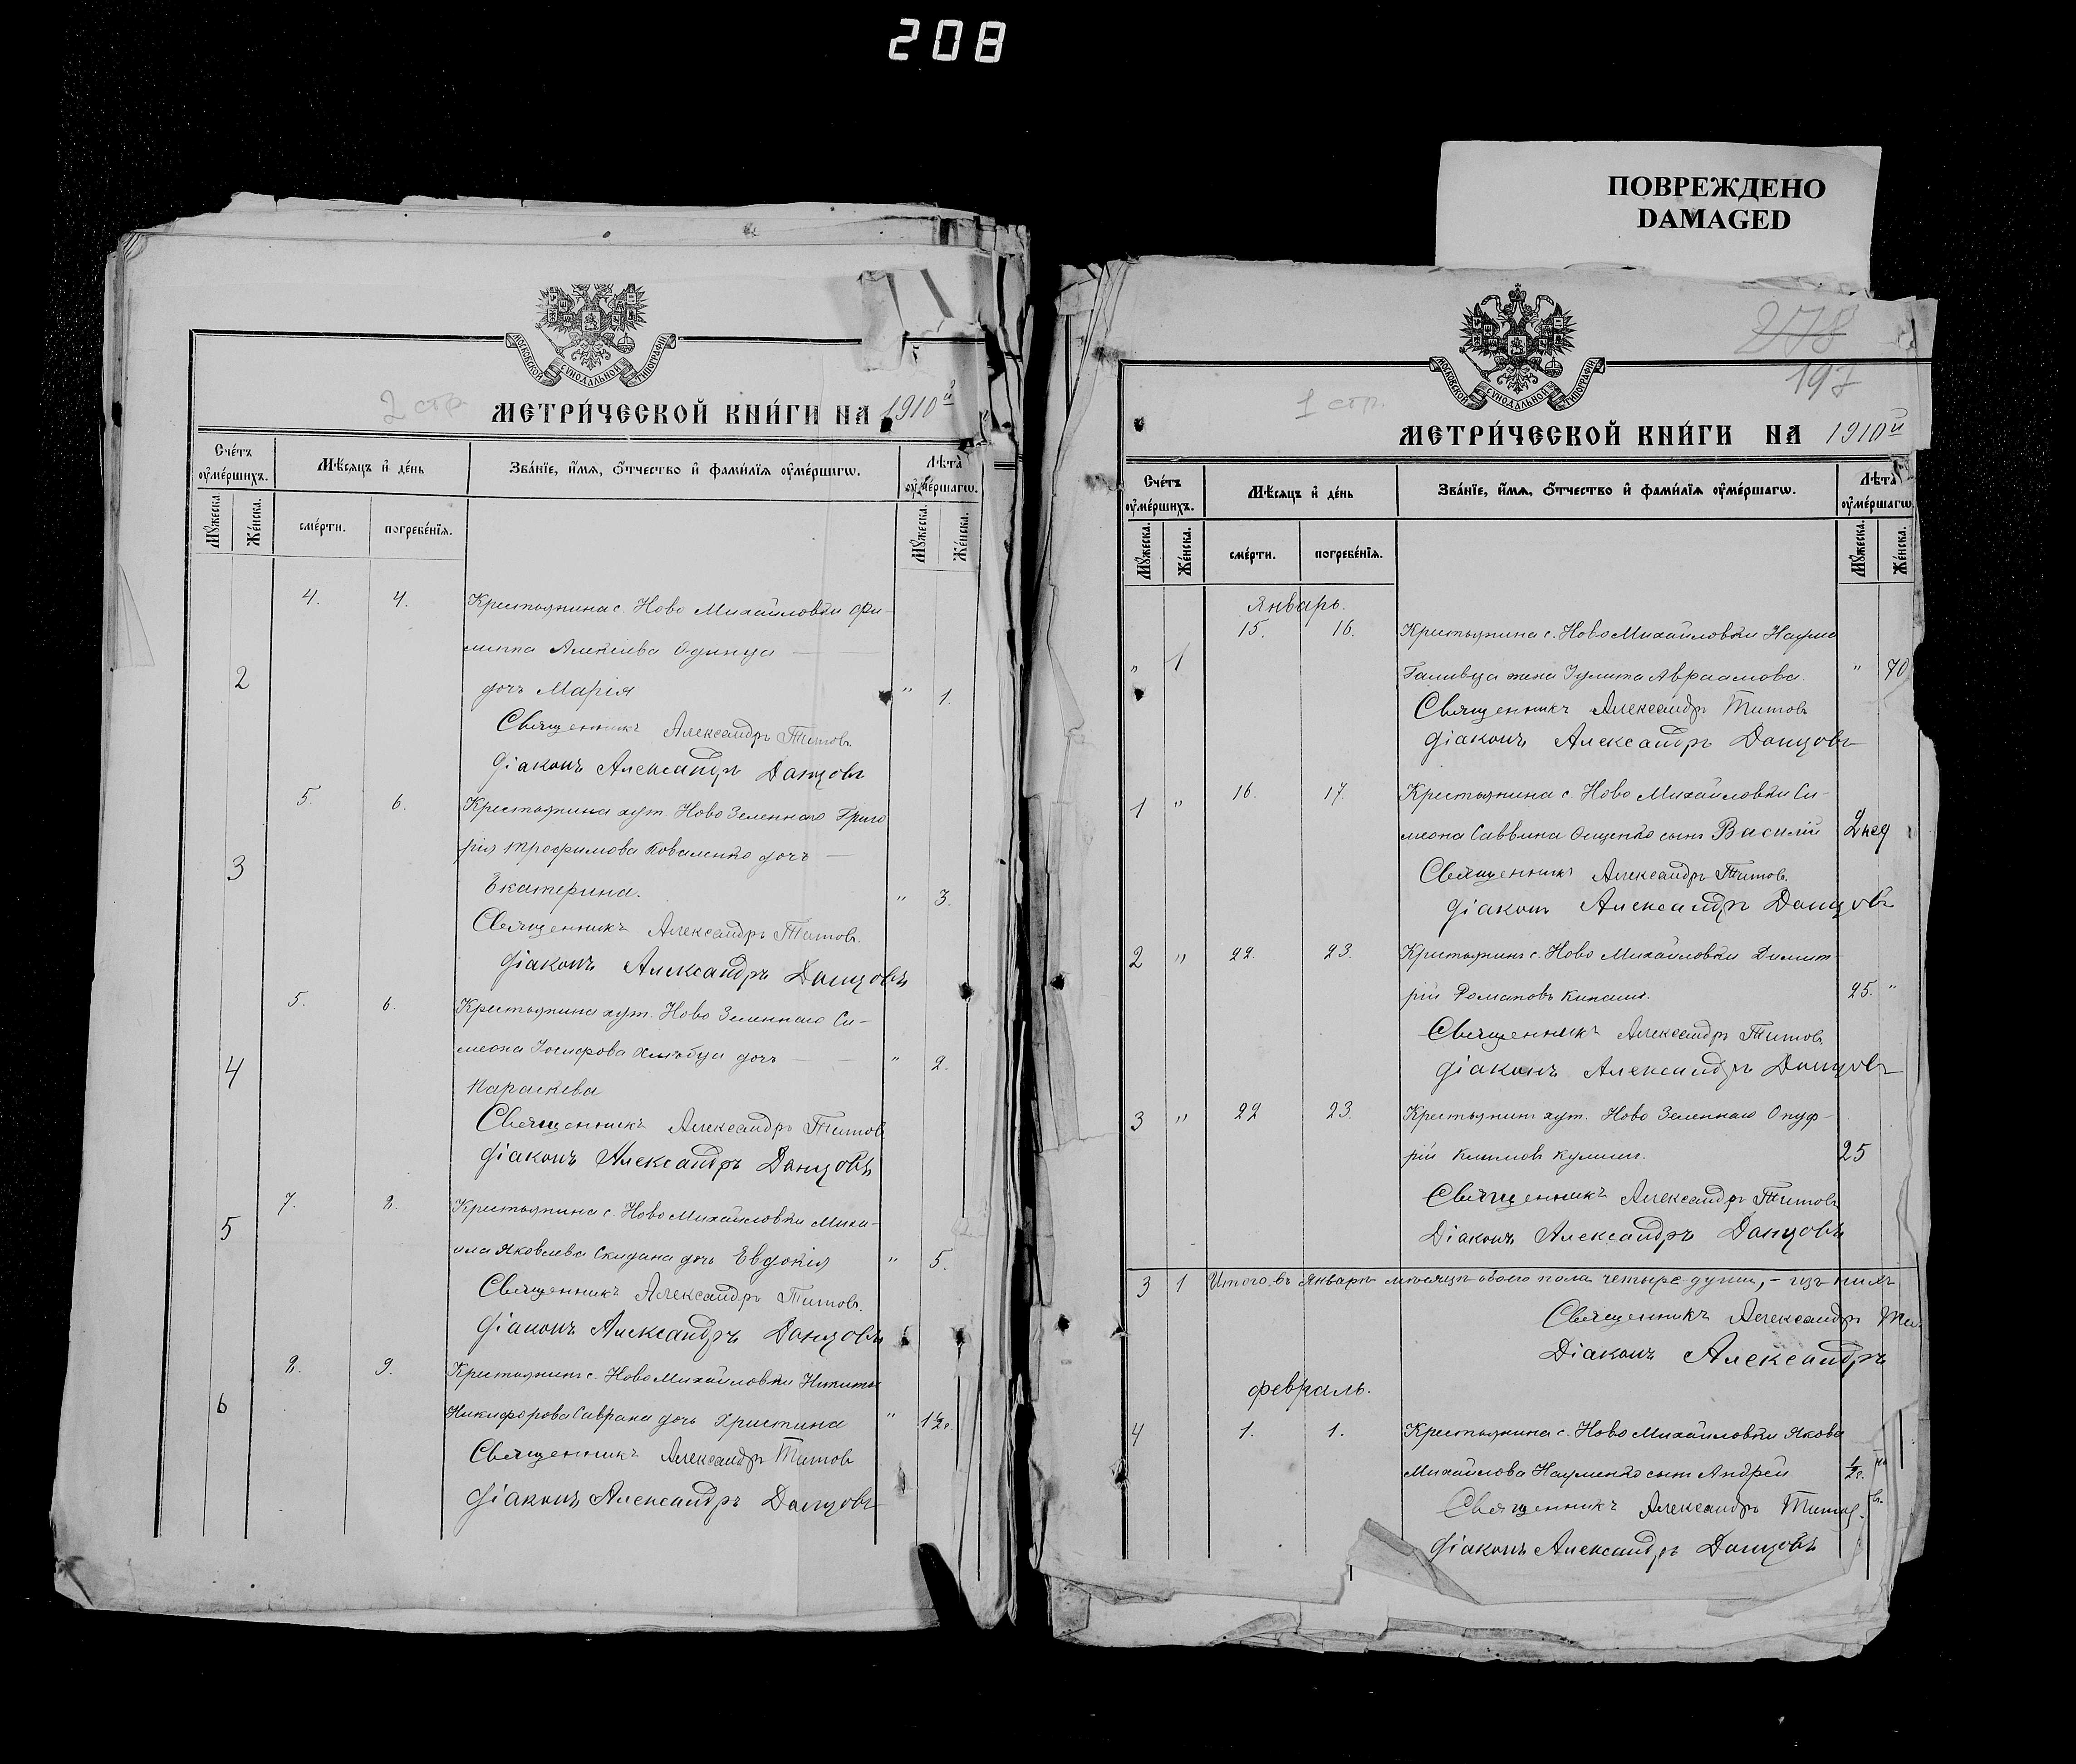 208
ПОВРЕЖДЕНО
DAMAGED
МОСКОВСКОЙ СУНОДАЛЬНОЙ ТИПОГРАФІИ
2 стр.
МЕТРИ́ЧЕСКОЙ КНИ́ГИ НА 1910й
Сче́тъ оу҆ме́ршихъ.
Мѣ́сяцъ и҆ де́нь
Зва́нїе, и҆́мѧ, ѻ҆́тчество и҆ фами́лїѧ оу҆ме́ршагѡ.
Лѣ́та оу҆ме́ршагѡ.
Мꙋ́жеска.
Же́нска.
сме́рти.
погребе́нїѧ.
Мꙋ́жеска.
Же́нска.
4. 4. Крестьянина с. Ново Михайловки Фи-
липпа Алексіева
2 дочь Марія " 1.
Священникъ Александръ Титовъ
Діаконъ Александръ Данцовъ
5. 6. Крестьянина хут. Ново Зеленнаго Григо
рія Трофимова Коваленко дочь
3 Екатерина. " 3.
Священникъ Александръ Титовъ.
Діаконъ Александръ Данцовъ
5. 6. Крестьянина хут. Ново Зеленнаго Си-
меона Іосифова дочь " 2.
4 Параскева
Священникъ Александръ Титовъ
Діаконъ Александръ Данцовъ
7. 8. Крестьянина с. Ново Михайловки Миха-
5 ила Яковлева Скидана дочь Евдокія " 5.
Священникъ Александръ Титовъ.
Діаконъ Александръ Данцовъ
8. 9. Крестьянинъ с. Ново Михайловки Никиты
6 Никифорова Саврана дочь Христина " 1½.
Священникъ Александръ Титовъ
Діаконъ Александръ Данцовъ
278
197
МОСКОВСКОЙ СУНОДАЛЬНОЙ ТИПОГРАФІИ
1 стр.
МЕТРИ́ЧЕСКОЙ КНИ́ГИ НА 1910й
Сче́тъ оу҆ме́ршихъ.
Мѣ́сяцъ и҆ де́нь
Зва́нїе, и҆́мѧ, ѻ҆́тчество и҆ фами́лїѧ оу҆ме́ршагѡ.
Лѣ́та оу҆ме́ршагѡ.
Мꙋ́жеска.
Же́нска.
сме́рти.
погребе́нїѧ.
Мꙋ́жеска.
Же́нска.
Январь.
15. 16. Крестьянина с. Ново Михайловки Наума
" 1 Галивца жена Іулита Авраамова. " 70
Священникъ Александръ Титовъ
Діаконъ Александръ Данцовъ
1 " 16. 17. Крестьянина с. Ново Михайловки Си-
меона Саввина Ющенко сынъ Василій 2 нед
Священникъ Александръ Титовъ.
Діаконъ Александръ Данцовъ
2 " 22. 23. Крестьянинъ с. Ново Михайловки Димит-
рій Романовъ 25. "
Священникъ Александръ Титовъ.
Діаконъ Александръ Данцовъ
3 " 22 23. Крестьянинъ хут. Ново Зеленнаго Онуф-
рій Климовъ Кулишъ. 25
Священникъ Александръ Титовъ
Діаконъ Александръ Данцовъ
3 1 Итого въ Январѣ мѣсяцѣ обоего пола четыре души, –
Священникъ Александръ Ти
Діаконъ Александръ
Февраль.
4 1. 1. Крестьянина с. Ново Михайловки Якова
Михайлова Науменко сынъ Андрей ½ г.
Священникъ Александръ Титов
Діаконъ Александръ Данцовъ